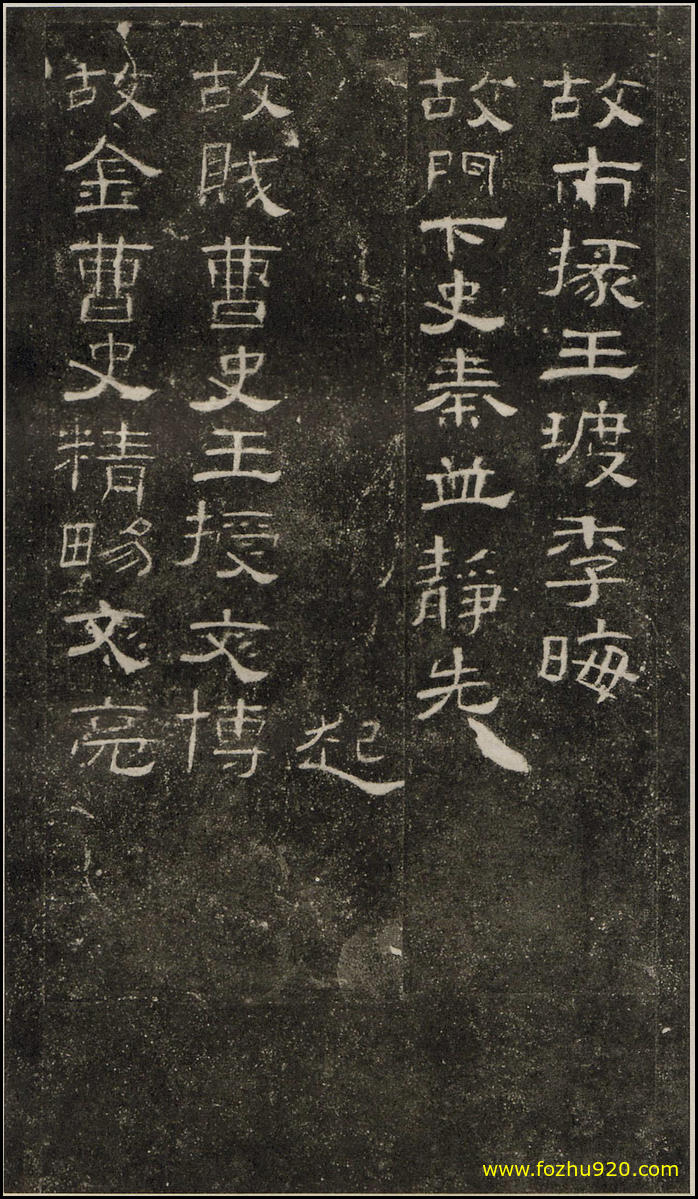 故市掾王玻季晦
故門下史秦並靜先
起
故賊曹史王授文博
故金曹史精畼文亮
www.fozhu920.com